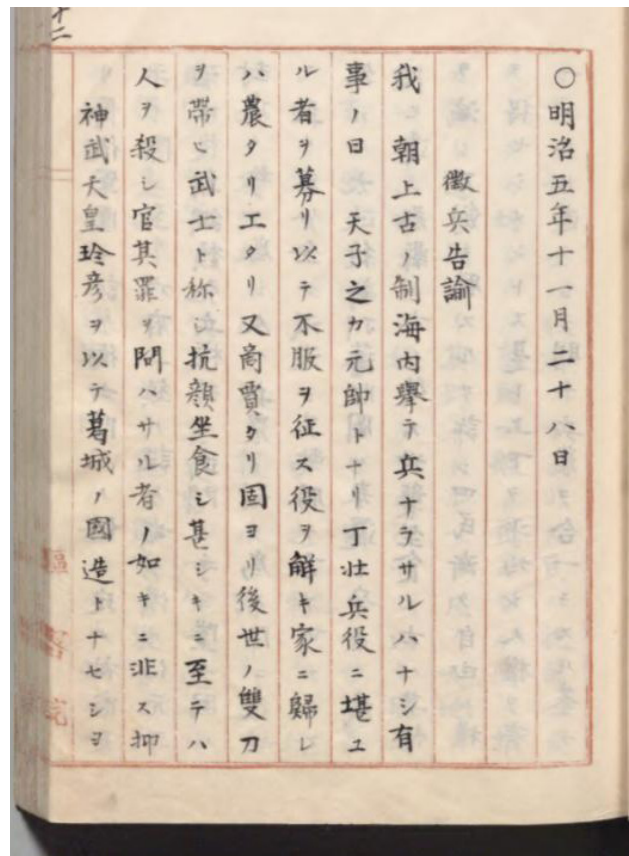 十二
〇明治五年十一月二十八日
徴兵告諭
我 朝上古ノ制海内擧テ兵ナラサルハナシ有
事ノ日 天子之カ元帥トナリ丁壮兵役ニ堪ユ
ル者ヲ募リ以テ不服ヲ征ス役ヲ解キ家ニ歸レ
ハ農タリエタリ又商賈タリ固ヨリ後世ノ雙刀
ヲ帶ヒ武士ト称シ抗顔坐食シ甚シキニ至テハ
人ヲ殺シ官其罪ヲ問ハサル者ノ如キニ非ス抑
神武天皇玲彦ヲ以テ葛城ノ國造トナセシヨ